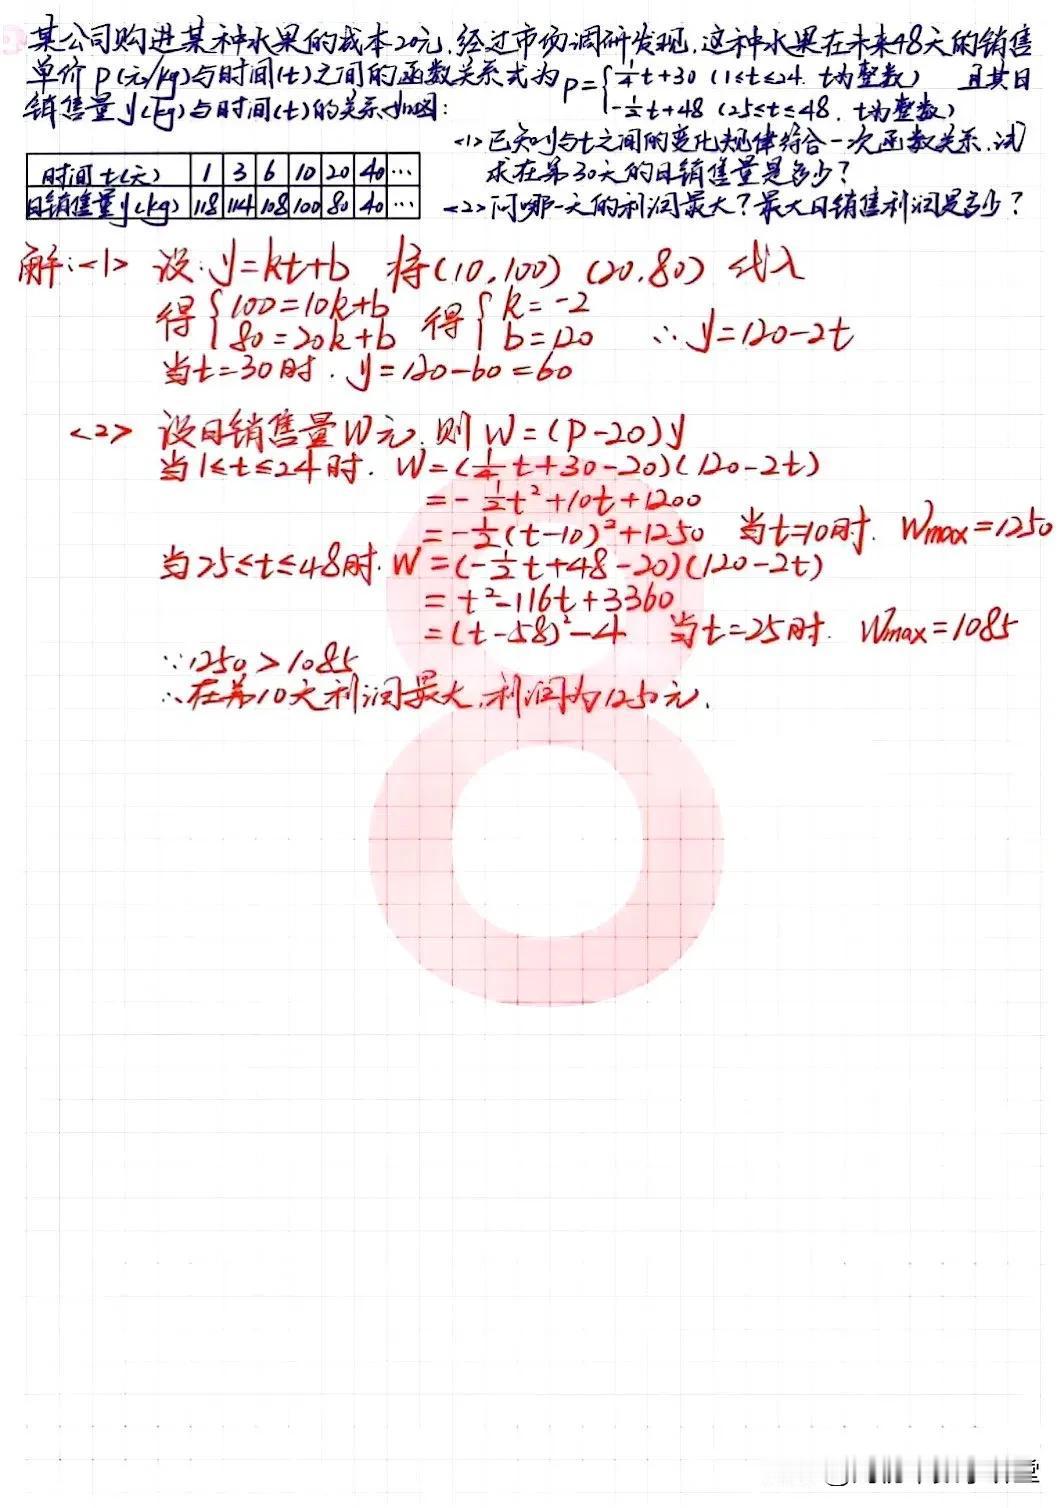 某公司购进某种水果的成本20元,经过市场调研发现,这种水果在未来48天的销售
单价P(元/kg)与时间(t)之间的函数关系式为P={ 1/4t+30 (1≤t≤24. t为整数) 且其日
-1/2t+48 (25≤t≤48. t为整数)
销售量y(kg)与时间(t)的关系如图:
<1>已知y与t之间的变化规律符合一次函数关系.试
求在第30天的日销售量是多少?
时间t(天) 1 3 6 10 20 40 ···
日销售量y(kg) 118 114 108 100 80 40 ···
<2>问哪一天的利润最大?最大日销售利润是多少?
解:<1> 设:y=kt+b 将(10,100) (20,80) 代入
得{ 100=10k+b 得{ k=-2
80=20k+b b=120 ∴y=120-2t
当t=30时. y=120-60=60
<2> 设日销售量W元.则W=(P-20)y
当1≤t≤24时. W=(1/4t+30-20)(120-2t)
=-1/2t²+10t+1200
=-1/2(t-10)²+1250 当t=10时. Wmax=1250
当25≤t≤48时. W=(-1/2t+48-20)(120-2t)
=t²-116t+3360
=(t-58)²-4 当t=25时. Wmax=1085
∵1250>1085
∴在第10天利润最大,利润为1250元.